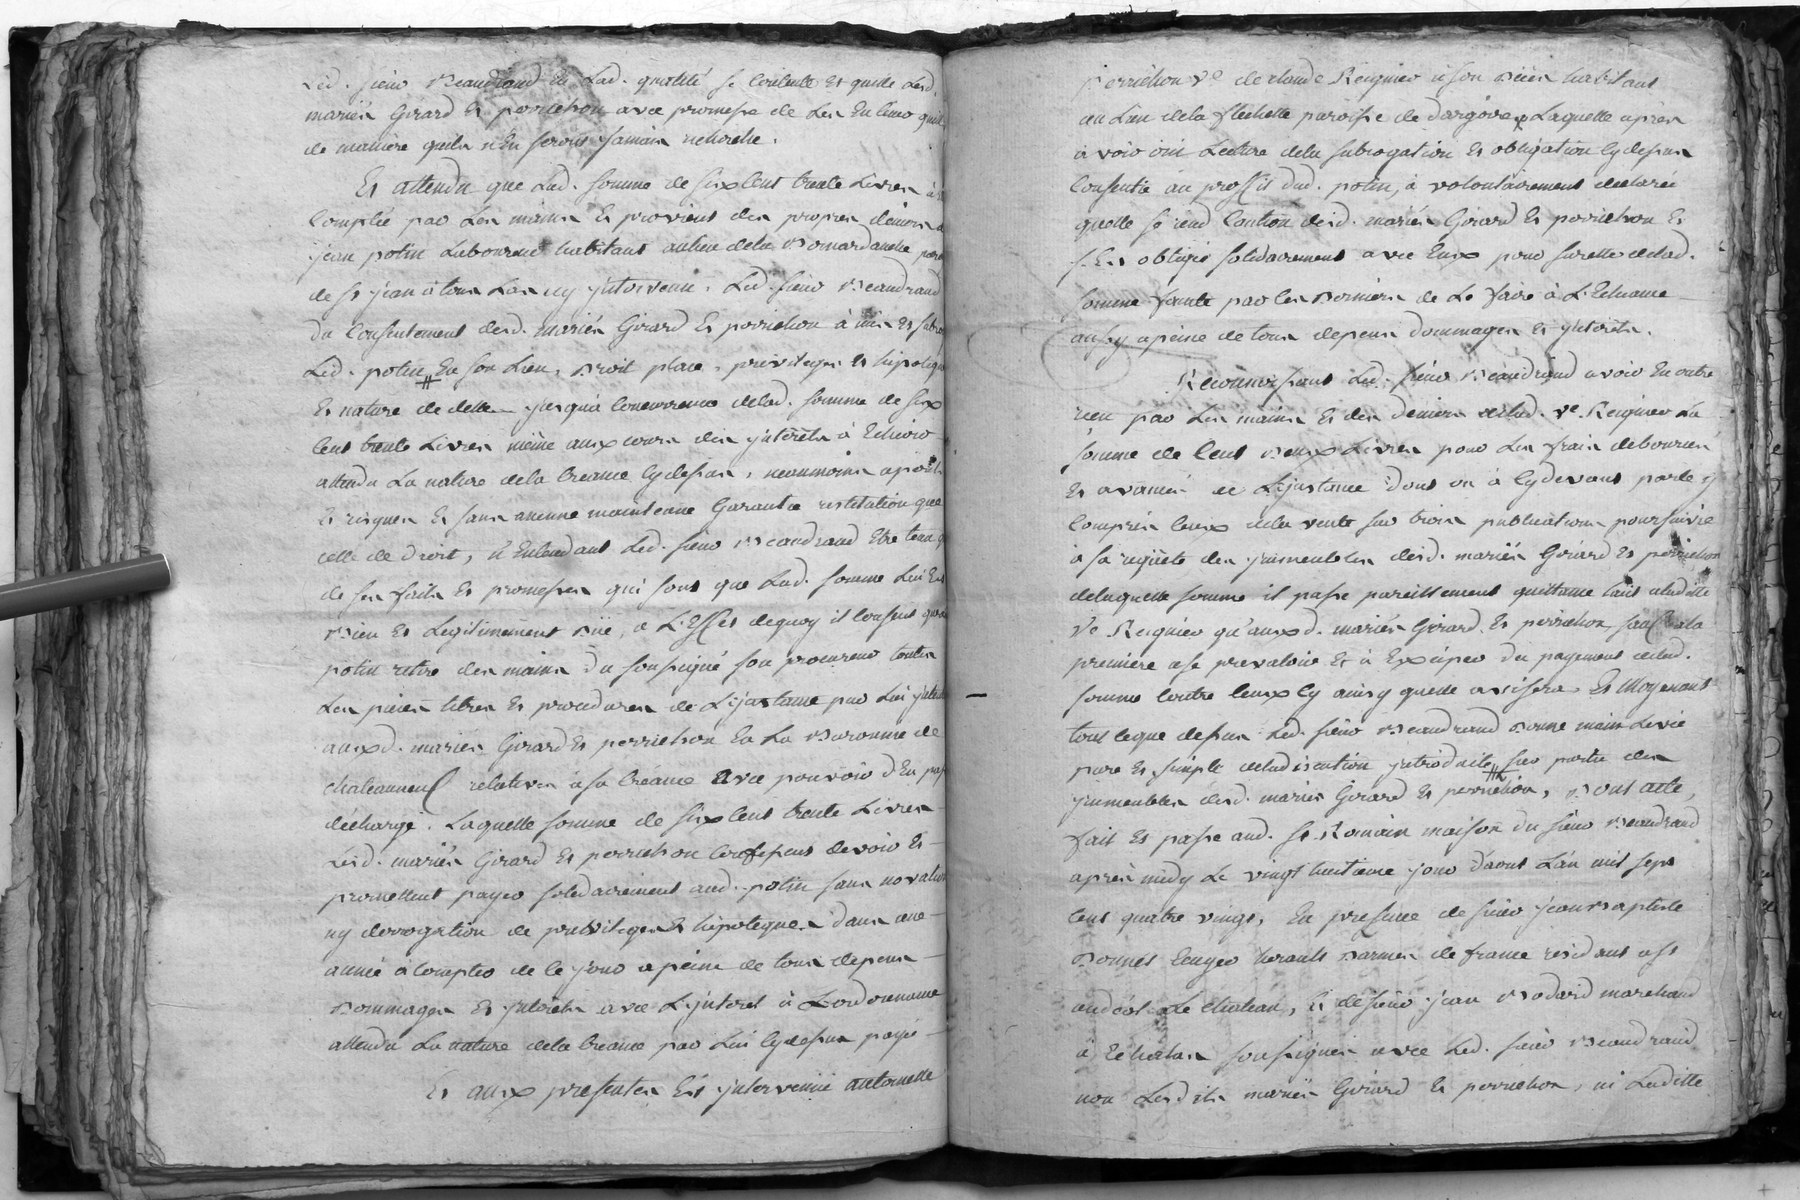 Led. sieur Beaudrand en lad. qualité se contente et quitte lesd.
mariés Girard et perrichon avec promesse de les en tenir quit
de maniere quils n'en seront jamais recherche.
Et attendu que lad. somme de six cent trente Livres à été
Comptée par les mains et provient des propres deniers de
jean potin Laboureur habitant au lieu de la Bomardanche paroi
de st jean à toulas icy jntervenu. Led. sieur Beaudrand
du Consentement desd. mariés Girard et perrichon à mis et subrog
Led. potin en son Lieu, Droit place, privileges et hipoteques
et nature de dette jusqu'à Concurrence de lad. somme de six
cent trente Livres même aux cours des jnterêts à Echeoir
attendu La nature de la Creance cy dessus, neanmoins a perils
et risques et sans aucune maintenue Garantie restitution que
celle de Droit, n'Entendant Led. sieur Beaudrand Etre tenu q
de ses faits et promesses qui sont que Lad. somme lui Est
Bien et Legitimement Düe, a L'Effet de quoy il Consent que
potin retire des mains du soussigné son procureur toutes
Les pieces titres et procedures de L'jnstance par Lui jntentée
auxd. mariés Girard et perrichon En La Baronnie de
chateauneuf relatives à sa Créance avec pouvoir d'En pass
décharge. Laquelle somme de six cent trente Livres
Lesd. mariés Girard et perrichon Confessent devoir Et
promettent payer solidairement aud. potin sans novation
ny derrogation de privileges et hipoteques dans une
année à Compter de ce jour a peine de tous depens
Dommages et jnterêts avec L'jnteret à L'ordonnance
attendu La nature de la Creance par Lui cy dessus payé
Et aux presentes Est jntervenüe antoinette
perrichon ve de claude Reignier à son Decès habitant
au Lieu de la flechette paroisse de dargoire Laquelle après
avoir oüi Lecture de la subrogation et obligation cy dessus
Consentie au proffit dud. potin, à volontairement declarée
quelle se rend Caution desd. mariés Girard et perrichon Et
s'Est obligée solidairement avec Eux pour surette de lad.
somme faute par les Derniers de Le faire à L'Echeance
aussy a peine de tous depens Dommages et jnterêts.
Reconnoissant Led. sieur Beaudrand avoir En outre
reçu par Les mains et des deniers de lad. ve Reignier La
somme de Cent Deux Livres pour Les frais deboursés
Et avancés de L'jnstance dont on à cy devant parlé y
Compris Ceux de la vente sur trois publications poursuivie
à sa requête des jmmeubles desd. mariés Girard et perrichon
de laquelle somme il passe pareillement quittance tant à ladite
Ve Reignier qu'auxd. mariés Girard et perrichon sauf à la
premiere a se prevaloir Et à Exciper du payement de lad.
somme Contre Ceux cy ainsy quelle avisera. Et Moyenant
tout ce que dessus Led. sieur Beaudrand Donne main Levée
pure et simple de lad. jntroduite sur partie des
jmmeubles desd. mariés Girard et perrichon, Dont acte,
fait et passé aud. St Romain maison du sieur Beaudrand
après midy Le vingt huitieme jour d'aout L'an mil sept
cent quatre vingt, En presence de sieur jean Baptiste
Bonnet heraults D'armes de france residant a st
andéol Le chateau, Et de sieur jean Bodard marchand
à Echalas soussignés avec Led. sieur Beaudrand
non Lesdits mariés Girard Et perrichon, ni Laditte